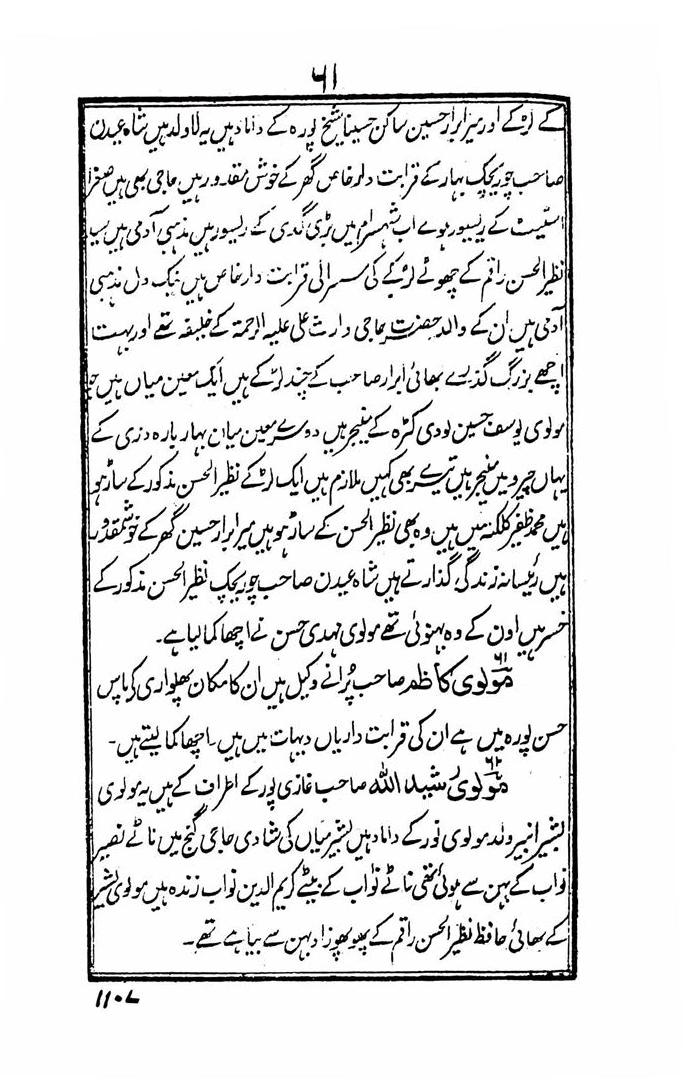 ۶۱
کے لڑکے اور میر ابرار حسین ساکن حسینا شیخپورہ کے داماد ہیں یہ لاولد ہیں شاہ عیدن
صاحب چوریچک بہار کے قرابت دار خاص گھر کے خوش مقدور ہیں حاجی بھی ہیں صغرا
اسٹیٹ کے ریسیور ہوے اب شہسرام میں بڑی گدی کے ریسیور ہیں مذہبی آدمی ہیں سید
نظیر الحسن راقم کے چھوٹے لڑکے کی سسرالی قرابت دار خاص ہیں نیک دل مذہبی
آدمی ہیں ان کے والد حضرت حاجی وارث علی علیہ الرحمۃ کے خلیفہ تھے اور بہت
اچھے بزرگ گذرے بھائی ابرار صاحب کے چند لڑکے ہیں ایک معین میاں ہیں جو
مولوی یوسف حسین لودی کٹرہ کے منیجر ہیں دوسرے معین میاں بہار بارہ دری کے
یہاں جیرو میں منیجر ہیں تیسرے بھی کہیں ملازم ہیں ایک لڑکے نظیر الحسن مذکور کے ساڑہو
ہیں محمد ظفیر کلکتہ میں ہیں وہ بھی نظیر الحسن کے ساڑہو ہیں میر ابرار حسین گھر کے خوشمقدور
ہیں رئیسانہ زندگی گذارتے ہیں شاہ عیدن صاحب چوریچک نظیر الحسن مذکور کے
خسر ہیں اون کے وہ بہنوئی تھے مولوی مہدی حسن نے اچھا کما لیا ہے۔
۶۱ مولوی کاظم صاحب پُرانے وکیل ہیں ان کا مکان پھلواری کی پاس
حسن پورہ میں ہے ان کی قرابت داریاں دیہات میں ہیں۔ اچھا کما لیتے ہیں۔
۶۲ مولوی عبد اللہ صاحب غازی پور کے اطراف کے ہیں یہ مولوی
بشیر انبیر ولد مولوی نور کے داماد ہیں بشیر میاں کی شادی حاجی گنج میں ناٹے نصیر
نواب کے بہن سے ہوئی تھی ناٹے نواب کے بیٹے کریم الدین نواب زندہ ہیں مولوی بشیر
کے بھائی حافظ نظیر الحسن راقم کے پھوپھوزاد بہن سے بیاہے تھے۔
۱۱۰۷